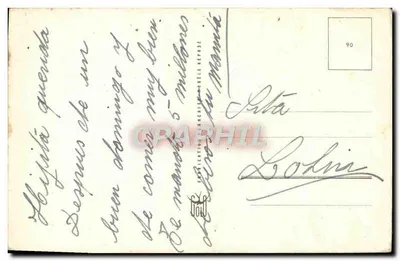 Hijita querida
Despues de un
buen domingo y
de comer muy bien
Te mando 5 millones
su Mamá
Srta
Lolin
90
CARPHIL